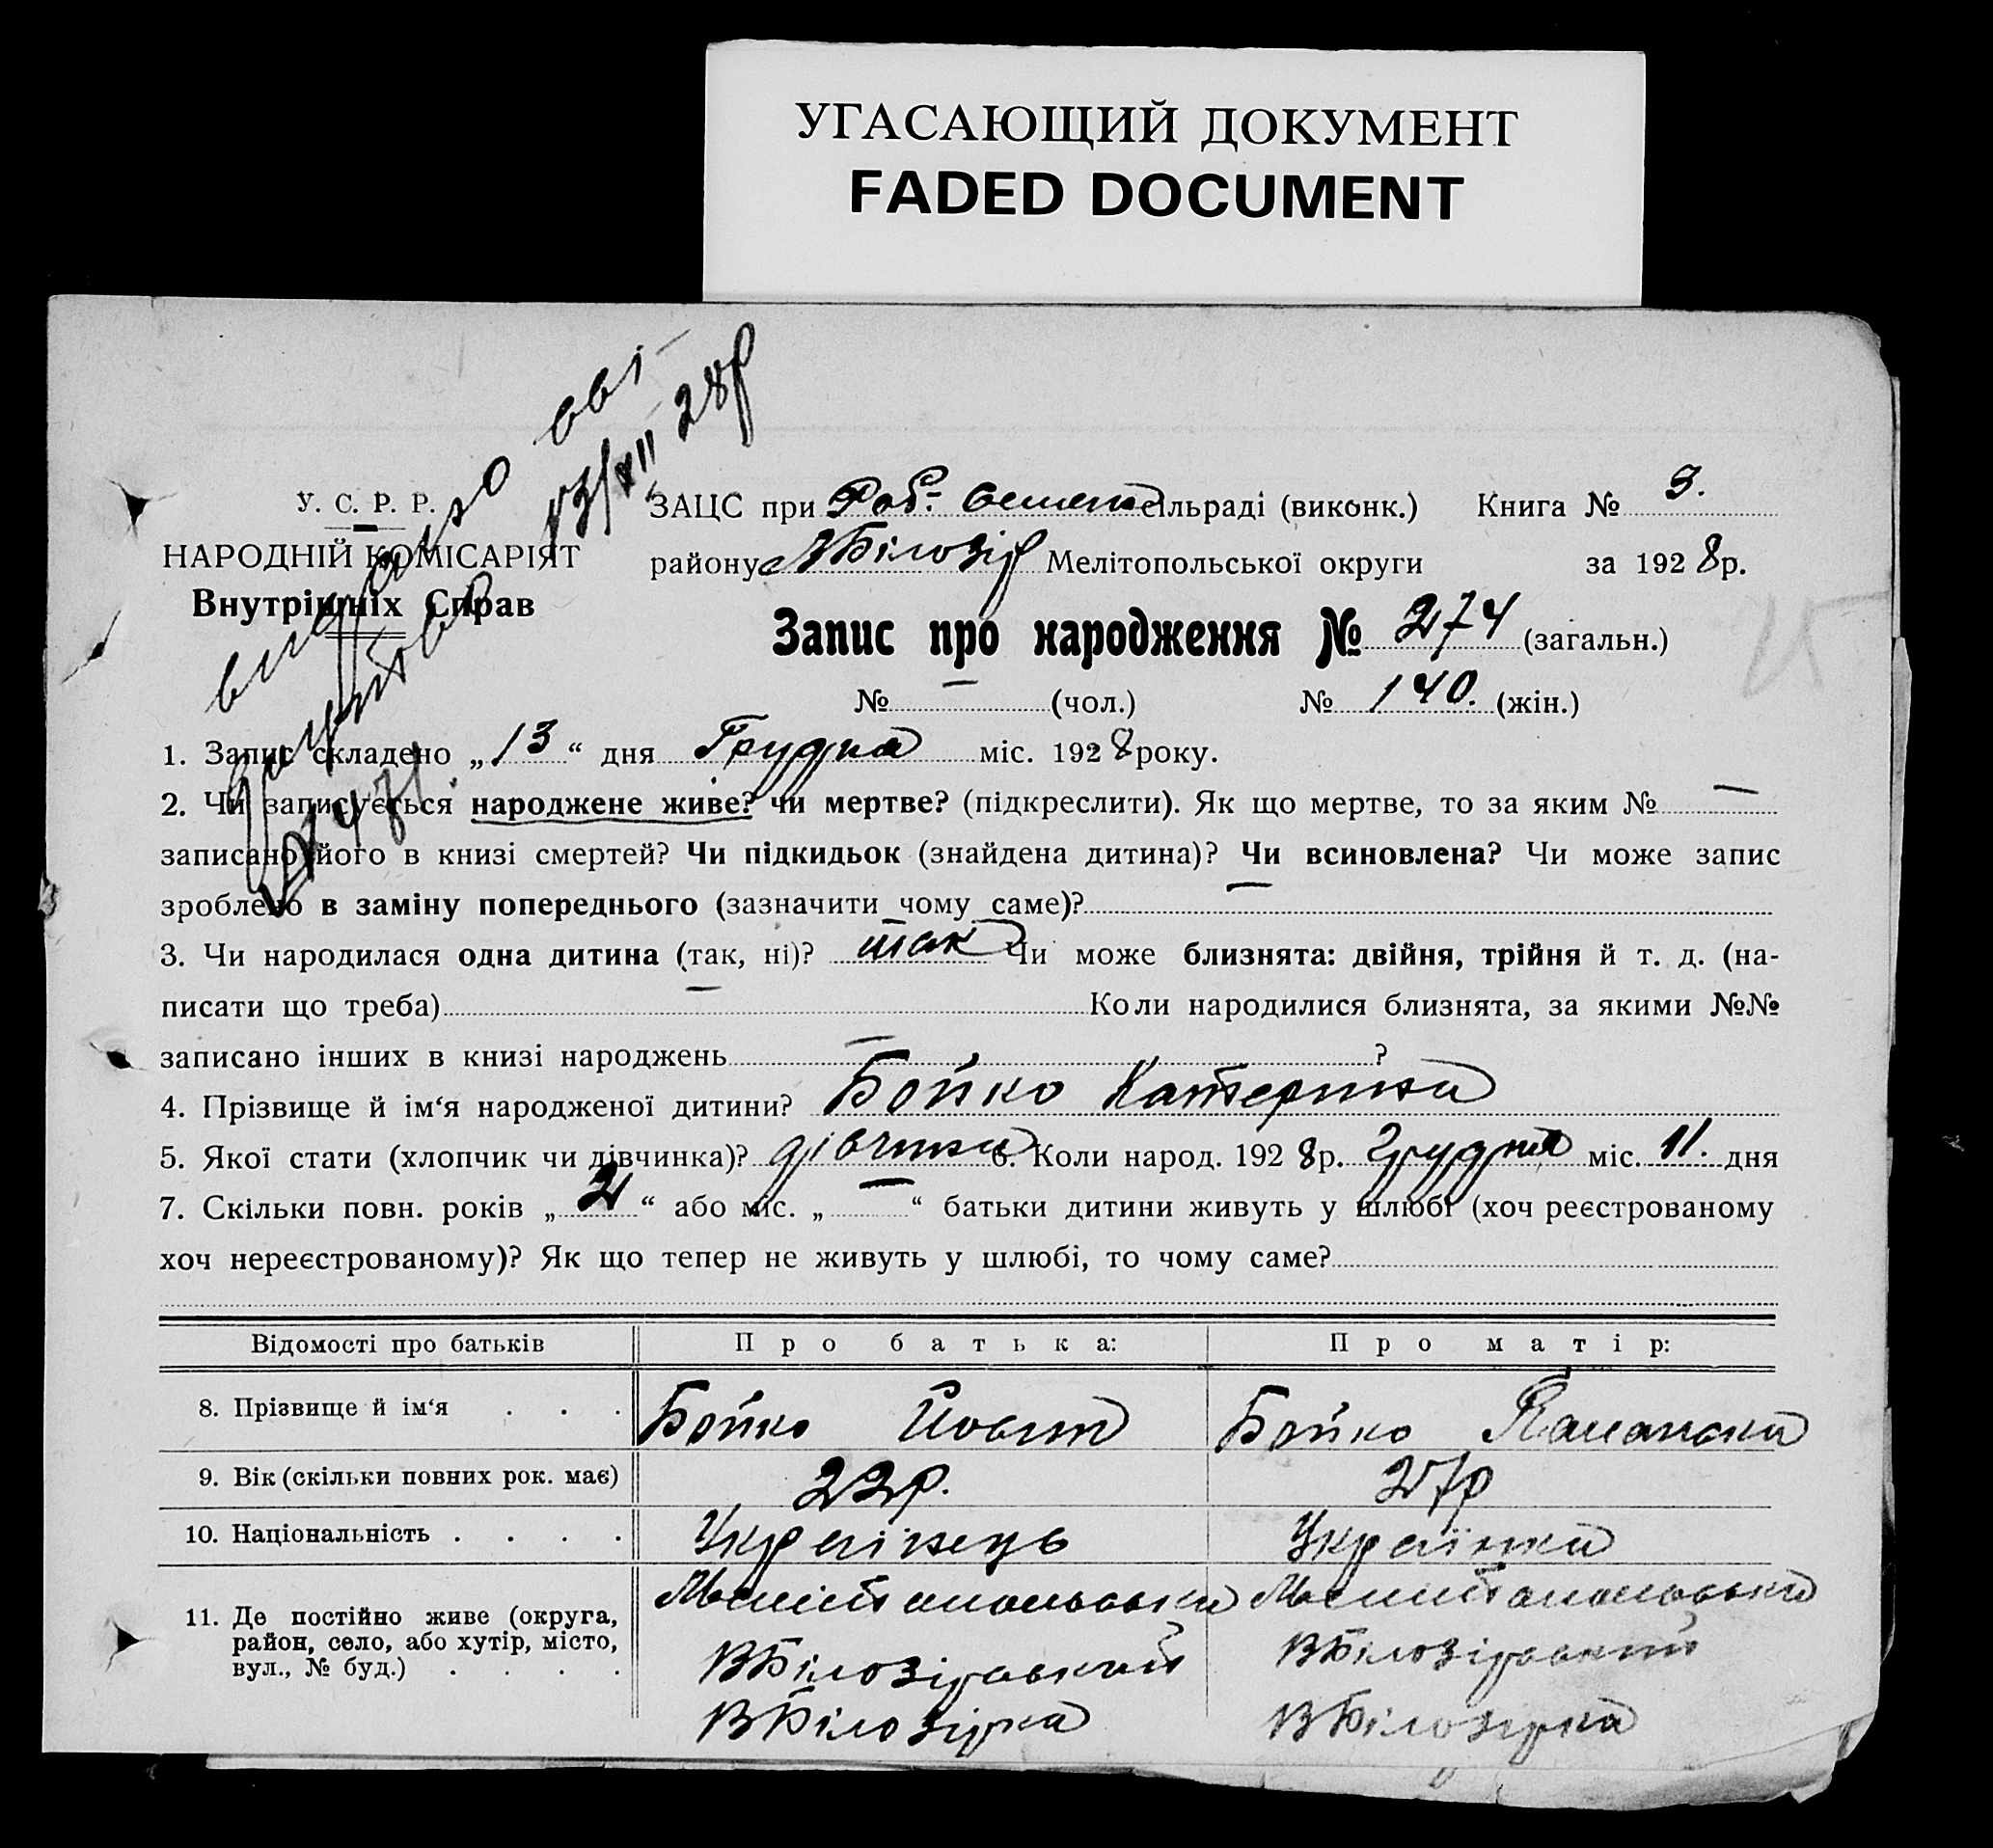 УГАСАЮЩИЙ ДОКУМЕНТ
FADED DOCUMENT
видано
13/XII 28р
У. С. Р. Р.
НАРОДНІЙ КОМІСАРІЯТ
Внутрішніх Справ
ЗАЦС при Роб. сільраді (виконк.) Книга № 3.
району ВБілозір Мелітопольської округи за 1928р.
Запис про народження № 274 (загальн.)
№ — (чол.) № 140. (жін.)
1. Запис складено „13“ дня Грудня міс. 1928 року.
2. Чи записується народжене живе? чи мертве? (підкреслити). Як що мертве, то за яким № —
записано його в книзі смертей? Чи підкидьок (знайдена дитина)? Чи всиновлена? Чи може запис
зроблено в заміну попереднього (зазначити чому саме)? —
3. Чи народилася одна дитина (так, ні)? так Чи може близнята: двійня, трійня й т. д. (на-
писати що треба) — Коли народилися близнята, за якими №№
записано інших в книзі народжень — ?
4. Прізвище й ім‘я народженої дитини? Бойко Катерина
5. Якої стати (хлопчик чи дівчинка)? дівчина 6. Коли народ. 1928р. Грудня міс. 11. дня
7. Скільки повн. років „2“ або міс. „—“ батьки дитини живуть у шлюбі (хоч реєстрованому
хоч нереєстрованому)? Як що тепер не живуть у шлюбі, то чому саме?
Відомості про батьків Про батька: Про матір:
8. Прізвище й ім‘я . . . Бойко Бойко
9. Вік (скільки повних рок. має) 22р. 27р
10. Національність . . . . Українець Українка
11. Де постійно живе (округа, район, село, або хутір, місто, вул., № буд.) . . . . Мелітопольська Мелітопольська
ВБілозірський ВБілозірський
ВБілозірка ВБілозірка